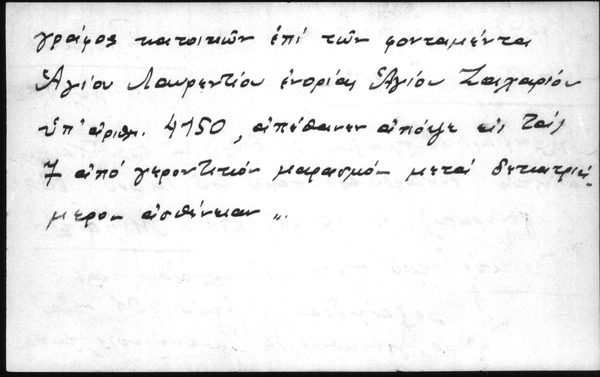 γράφος κατοικῶν ἐπί τῶν φονταμέντα
Ἁγίου Λαυρεντίου ἐνορίας Ἁγίου Ζαχαρίου
ὑπ' ἀριθμ. 4150, ἀπέθανεν ἀπόψε εἰς τάς
7 ἀπό γεροντικόν μαρασμόν μετά δεκατριή-
μερον ἀσθένειαν".